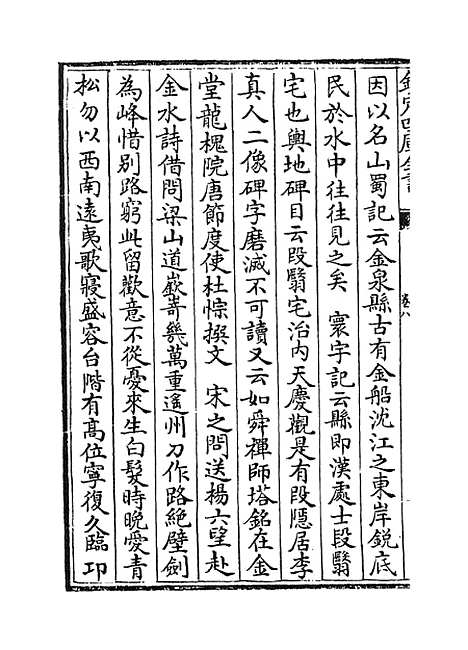 欽定四庫全書
卷八
因以名山蜀記云金泉縣古有金船沈江之東岸鋭底
民於水中往往見之矣　寰宇記云縣即漢處士段翳
宅也輿地碑目云段翳宅治内天慶觀是有段隱居李
真人二像碑字磨滅不可讀又云如舜禪師塔銘在金
堂龍槐院唐節度使杜悰撰文　宋之問送楊六望赴
金水詩借問梁山道嶔嵜幾萬重遙州刀作路絶壁劍
為峰惜别路窮此留歡意不從憂來生白髮時晩愛青
松勿以西南遠夷歌寢盛容台階有髙位寧復久臨卭